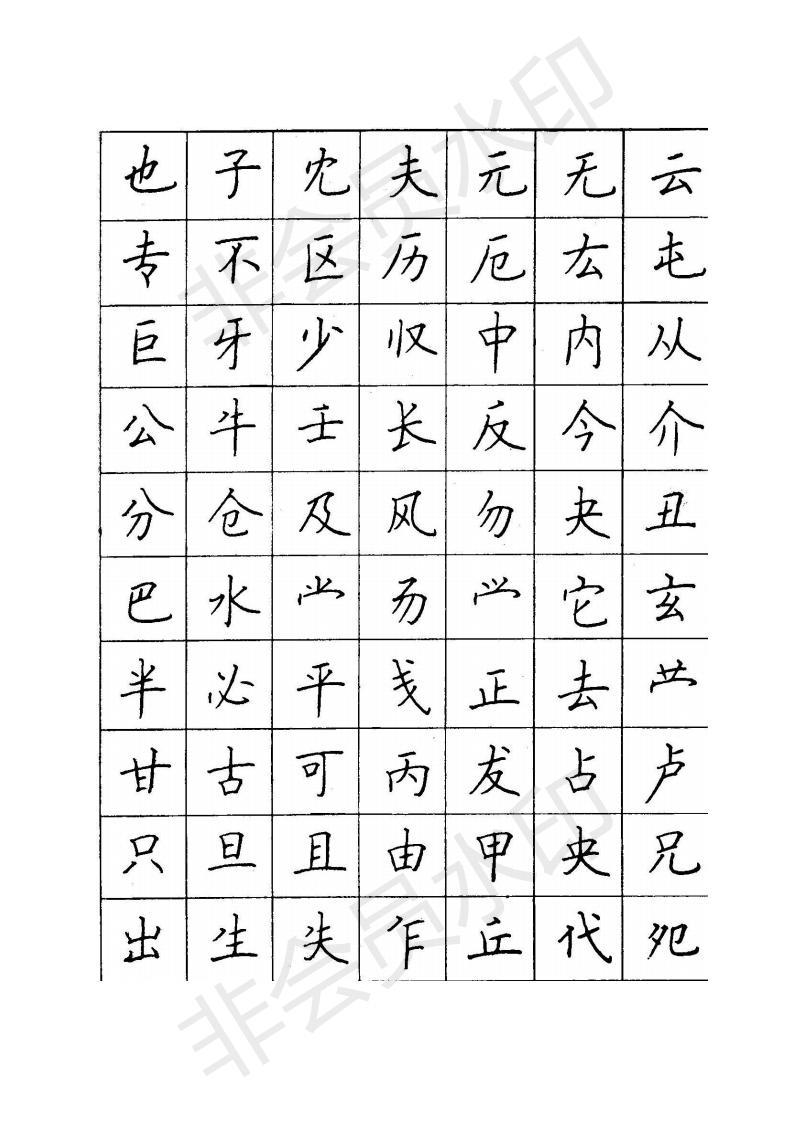 也 子 冘 夫 元 无 云
专 不 区 历 厄 厷 屯
巨 牙 少 収 中 内 从
公 牛 壬 长 反 今 介
分 仓 及 风 勿 夬 丑
巴 水 它 玄
半 必 平 戋 正 去
甘 古 可 丙 友 占 卢
只 旦 且 由 甲 央 兄
出 生 失 乍 丘 代 夗
非会员水印
非会员水印